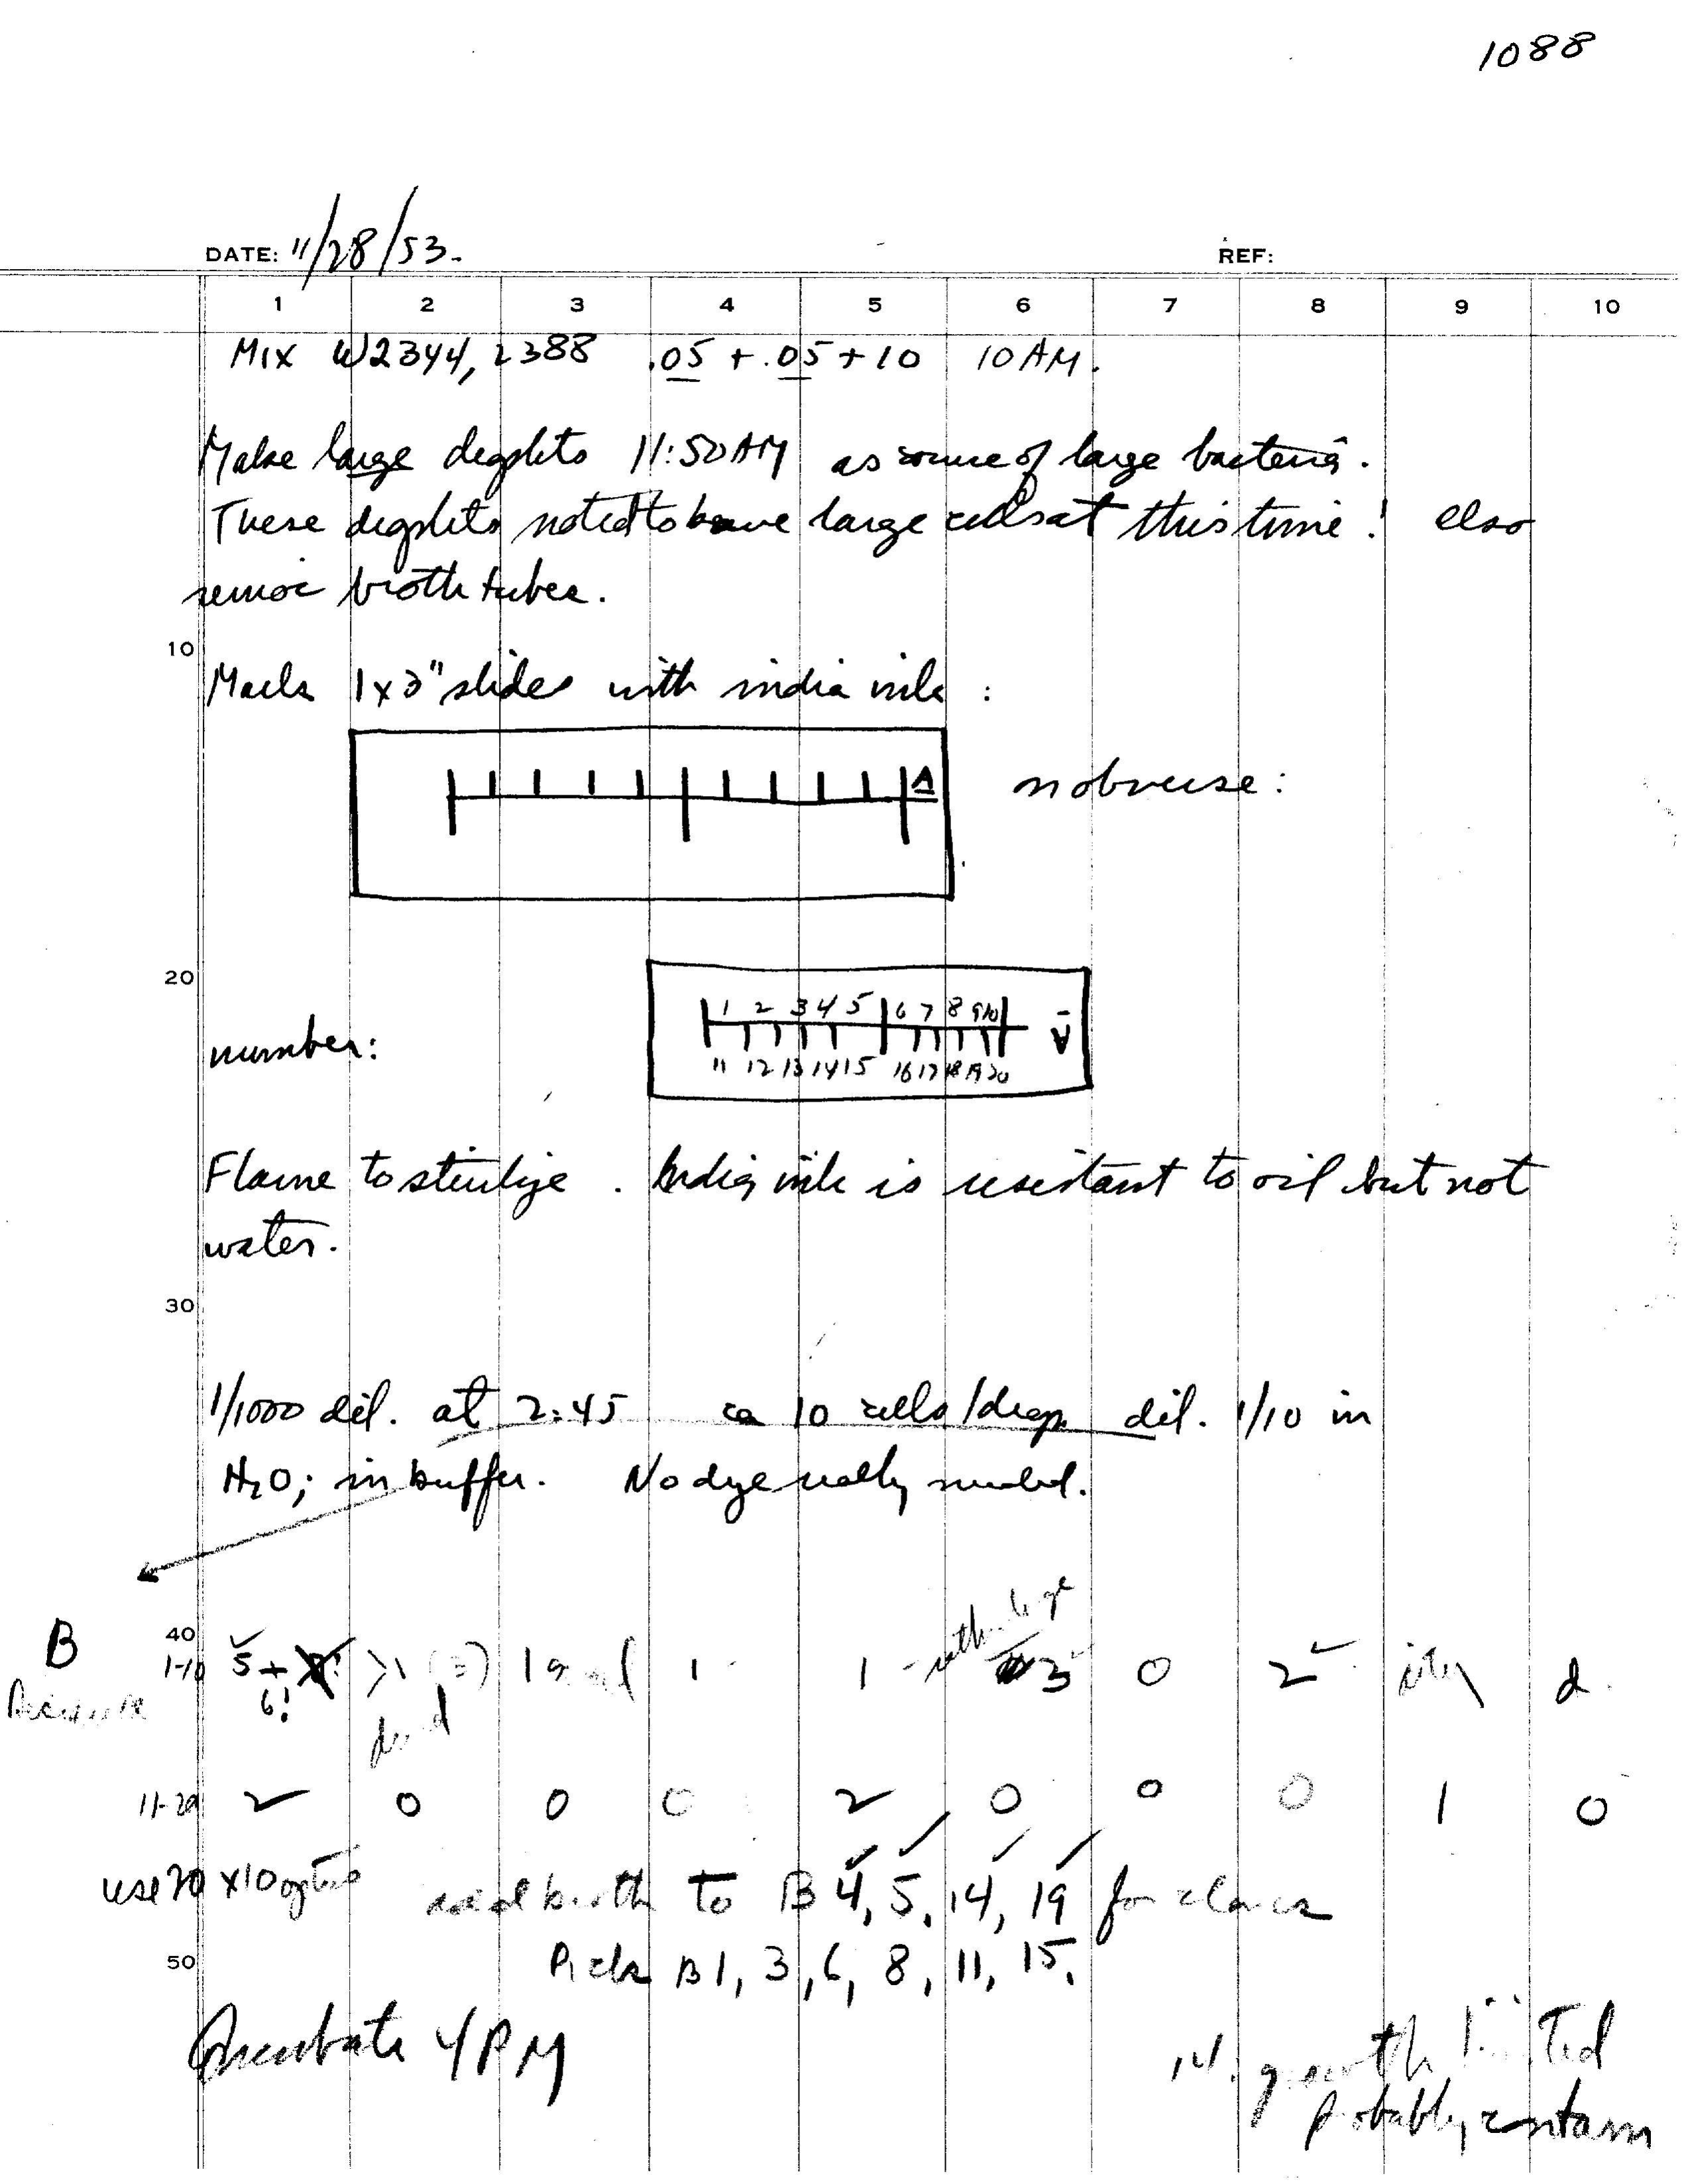 1088
DATE: 11/28/53.
REF:
1 2 3 4 5 6 7 8 9 10
Mix W2344, 2388 .05 + .05 + 10 10 AM.
Make large droplets 11:50 AM as source of large bacteria.
These droplets noted to have large cells at this time! also
in broth tubes.
10
Mark 1x3" slides with india ink :
A
on obverse:
20
1 2 3 4 5 6 7 8 9 10
number:
11 12 13 14 15 16 17 18 19 20
A
Flame to sterilize. India ink is resistant to oil but not
water.
30
1/1000 dil. at 2:45 ca 10 cells/drop dil. 1/10 in
H2O; in buffer. No dye really needed.
B
40
1-10 5+ 6! >1 (3) 1 1 1 - 3 0 2 d.
11-20 2 0 0 0 2 0 0 0 1 0
use 20 x10 optics add broth to B 4, 5, 14, 19 for clones
50
Pick B1, 3, 6, 8, 11, 15.
Incubate 4 PM
14. growth limited
probably contam